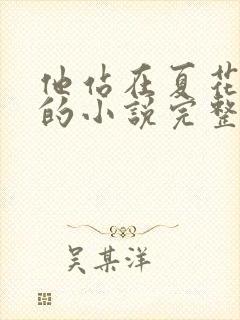 他佔在夏花
的小説完整
吴某洋